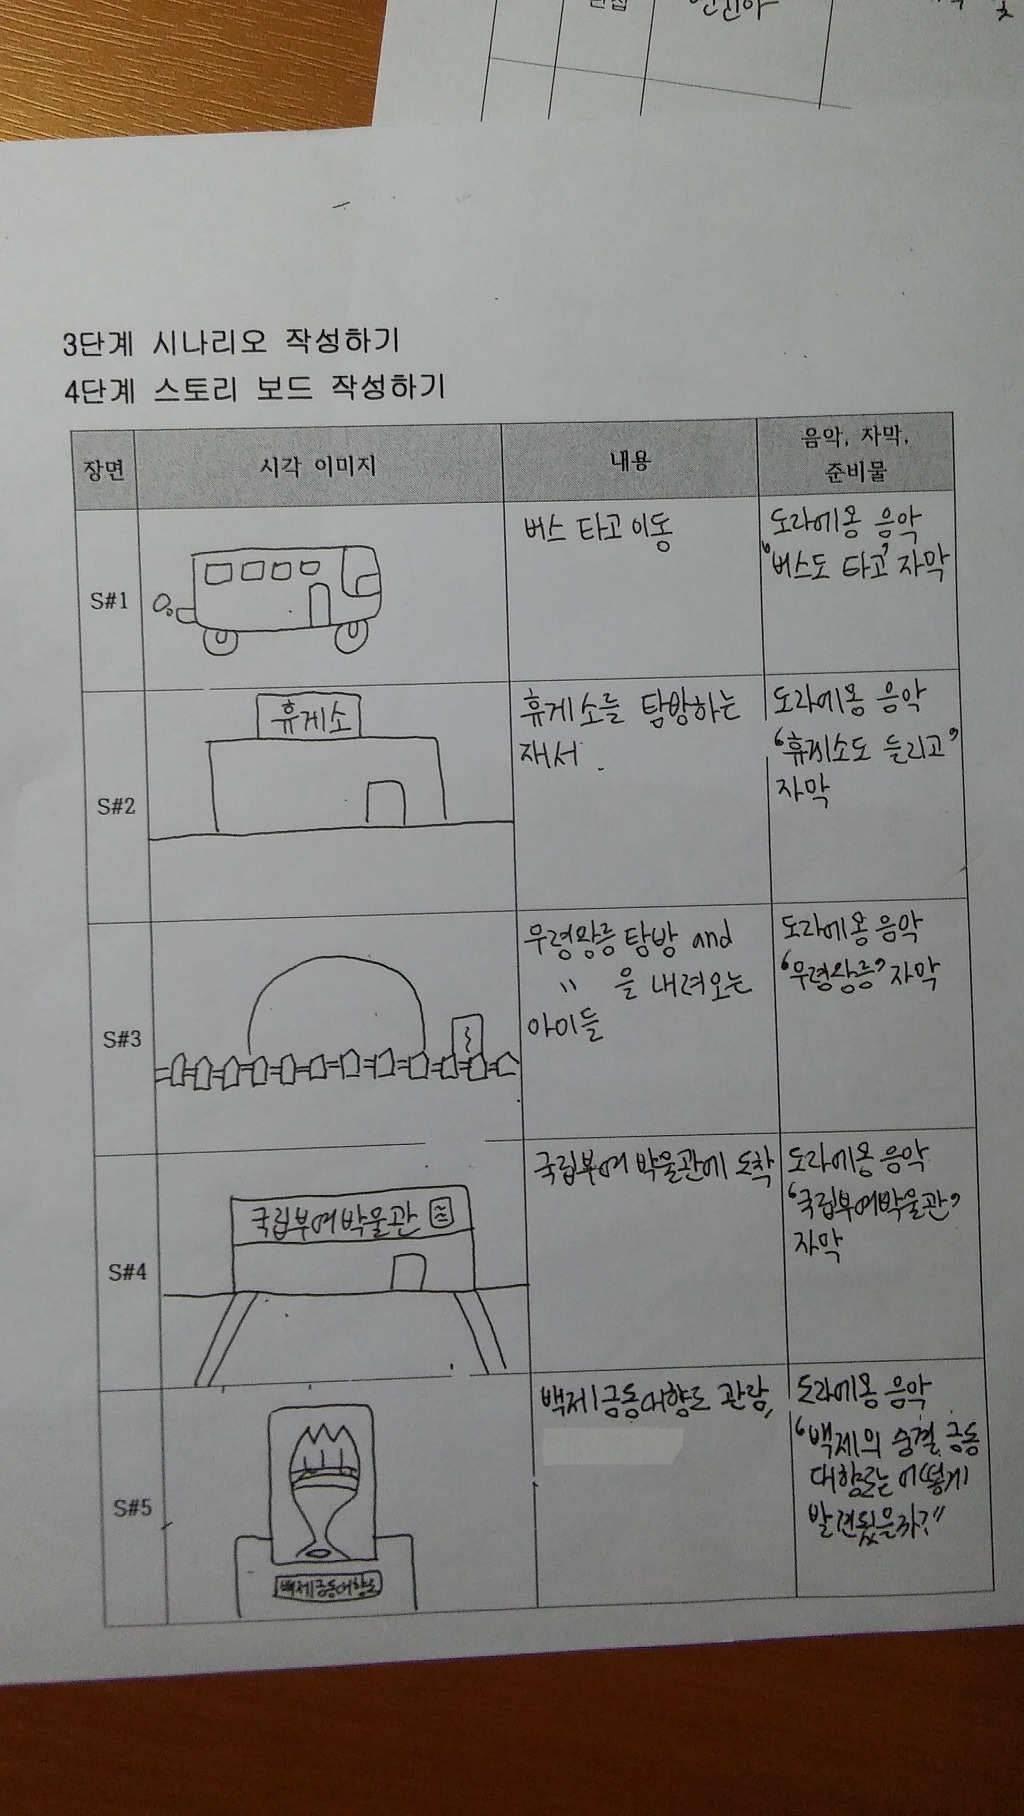 3단계 시나리오 작성하기
4단계 스토리 보드 작성하기
장면
시각 이미지
내용
음악, 자막,
준비물
S#1
버스 타고 이동
도라에몽 음악
'버스도 타고' 자막
S#2
휴게소
휴게소를 탐방하는
재서.
도라에몽 음악
"휴게소도 들리고"
자막
S#3
무령왕릉 탐방 and
〃 을 내려오는
아이들
도라에몽 음악
"무령왕릉" 자막
S#4
국립부여박물관
국립부여 박물관에 도착
도라에몽 음악
"국립부여박물관"
자막
S#5
백제금동대향로
백제금동대향로 관람,
도라에몽 음악
"백제의 숨결 금동
대향로는 어떻게
발견됬을까?"